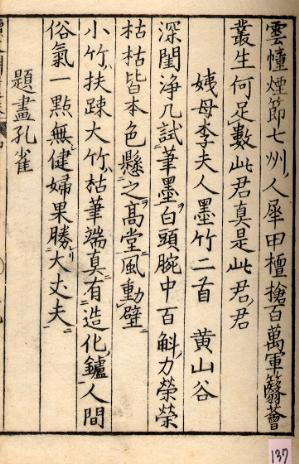 雲幢煙節七州人犀甲檀槍百萬軍翳薈
叢生何足數此君真是此君君
姨母李夫人墨竹二首　黄山谷
深閨淨几試筆墨白頭腕中百斛力榮榮
枯枯皆本色懸之髙堂風動壁
小竹扶踈大竹枯筆端真有造化鑪人間
俗氣一點無健婦果勝大丈夫
題畫孔雀
137